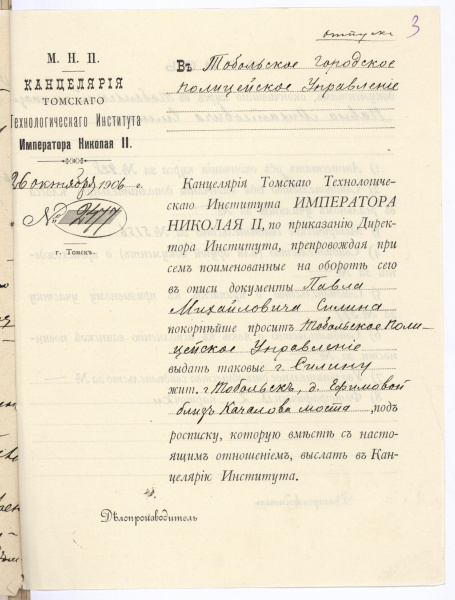 отпуск 3
М. Н. П.
КАНЦЕЛЯРІЯ
ТОМСКАГО
Технологическаго Института
Императора Николая II.
26 октября 1906 г.
№ 2477
Томскъ.
Въ Тобольское Городское
Полицейское Управленіе
Канцелярія Томскаго Технологиче-
скаго Института ИМПЕРАТОРА
НИКОЛАЯ II, по приказанію Дирек-
тора Института, препровождая при
семъ поименованные на оборотѣ сего
въ описи документы Павла
Михайловича Силина
покорнѣйше проситъ Тобольское Поли-
цейское Управленіе
выдать таковые г. Силину
жит. г. Тобольскъ, д. Ефимовой
близъ Качалова моста, подъ
росписку, которую вмѣстѣ съ насто-
ящимъ отношеніемъ, выслать въ Кан-
целярію Института.
Дѣлопроизводитель